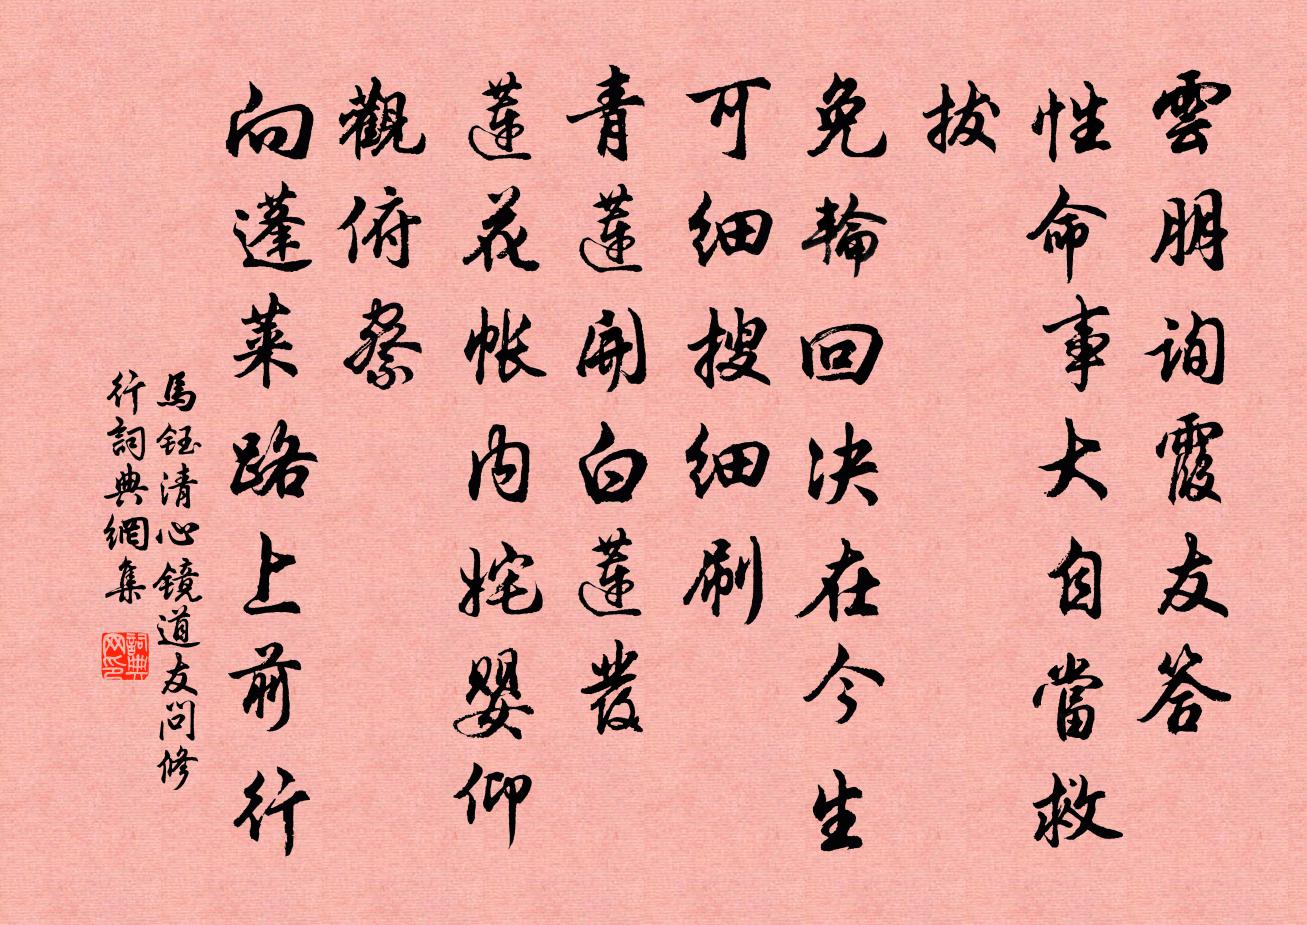 雲朋詢霞友答
性命事大自當救
拔
免輪回决在今生
可細搜細刷
青蓮開白蓮發
蓮花帳内姹嬰仰
觀俯察
向蓬萊路上前行
馬鈺清心鏡道友問修
行詞典網集
詞典